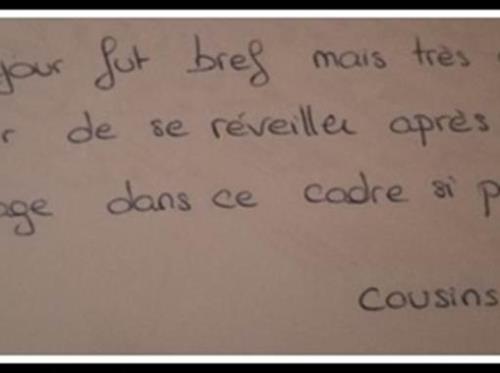 jour fut bref mais très
r de se réveiller après
age dans ce cadre si p
cousins